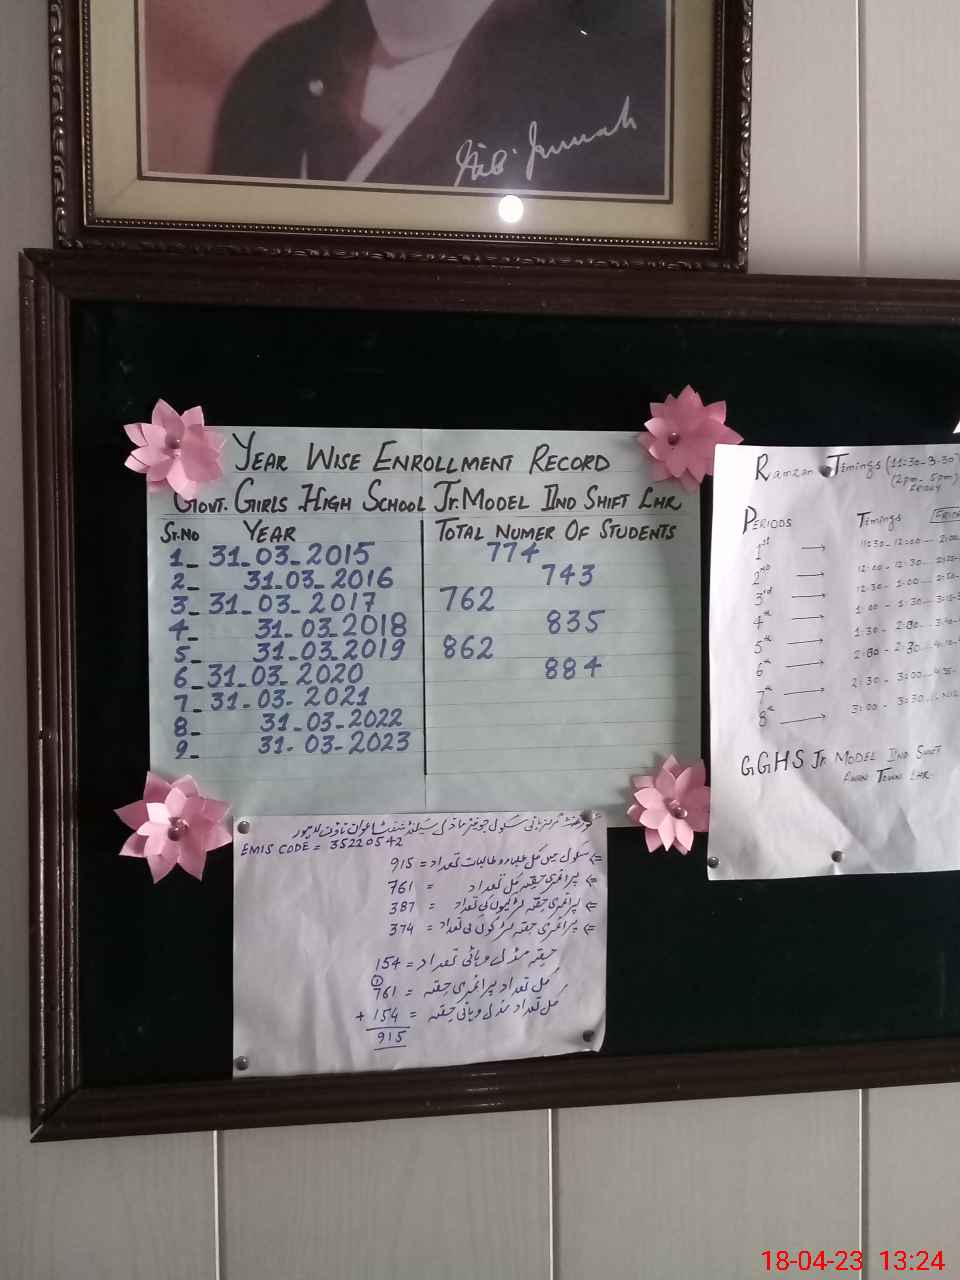 M.A. Jinnah
YEAR WISE ENROLLMENT RECORD
GOVT. GIRLS HIGH SCHOOL Jr. MODEL IIND SHIFT LHR
Sr.No YEAR TOTAL NUMER OF STUDENTS
1_ 31_03_2015 774
2_ 31_03_2016 743
3_ 31_03_2017 762
4_ 31_03_2018 835
5_ 31_03_2019 862
6_ 31_03_2020 884
7_ 31_03_2021
8_ 31_03_2022
9_ 31_03_2023
Ramzan Timings (11:30-3:30)
(2pm-5pm)
FRIDAY
PERIODS Timings
1st → 11:30-12:00
2nd → 12:00-12:30
3rd → 12:30-1:00
4th → 1:00-1:30
5th → 1:30-2:00
6th → 2:00-2:30
7th → 2:30-3:00
8th → 3:00-3:30
GGHS Jr. MODEL IIND SHIFT
AWAN TOWN LHR.
گورنمنٹ گرلز ہائی سکول جونیئر ماڈل سیکنڈ شفٹ اعوان ٹاؤن لاہور
EMIS CODE = 35220542
سکول میں کل طلباء و طالبات تعداد = 915
پرائمری حصہ کل تعداد = 761
پرائمری حصہ لڑکیوں کی تعداد = 387
پرائمری حصہ لڑکوں کی تعداد = 374
حصہ مڈل و ہائی تعداد = 154
کل تعداد پرائمری حصہ = 761
کل تعداد مڈل و ہائی حصہ = 154 +
915
18-04-23 13:24